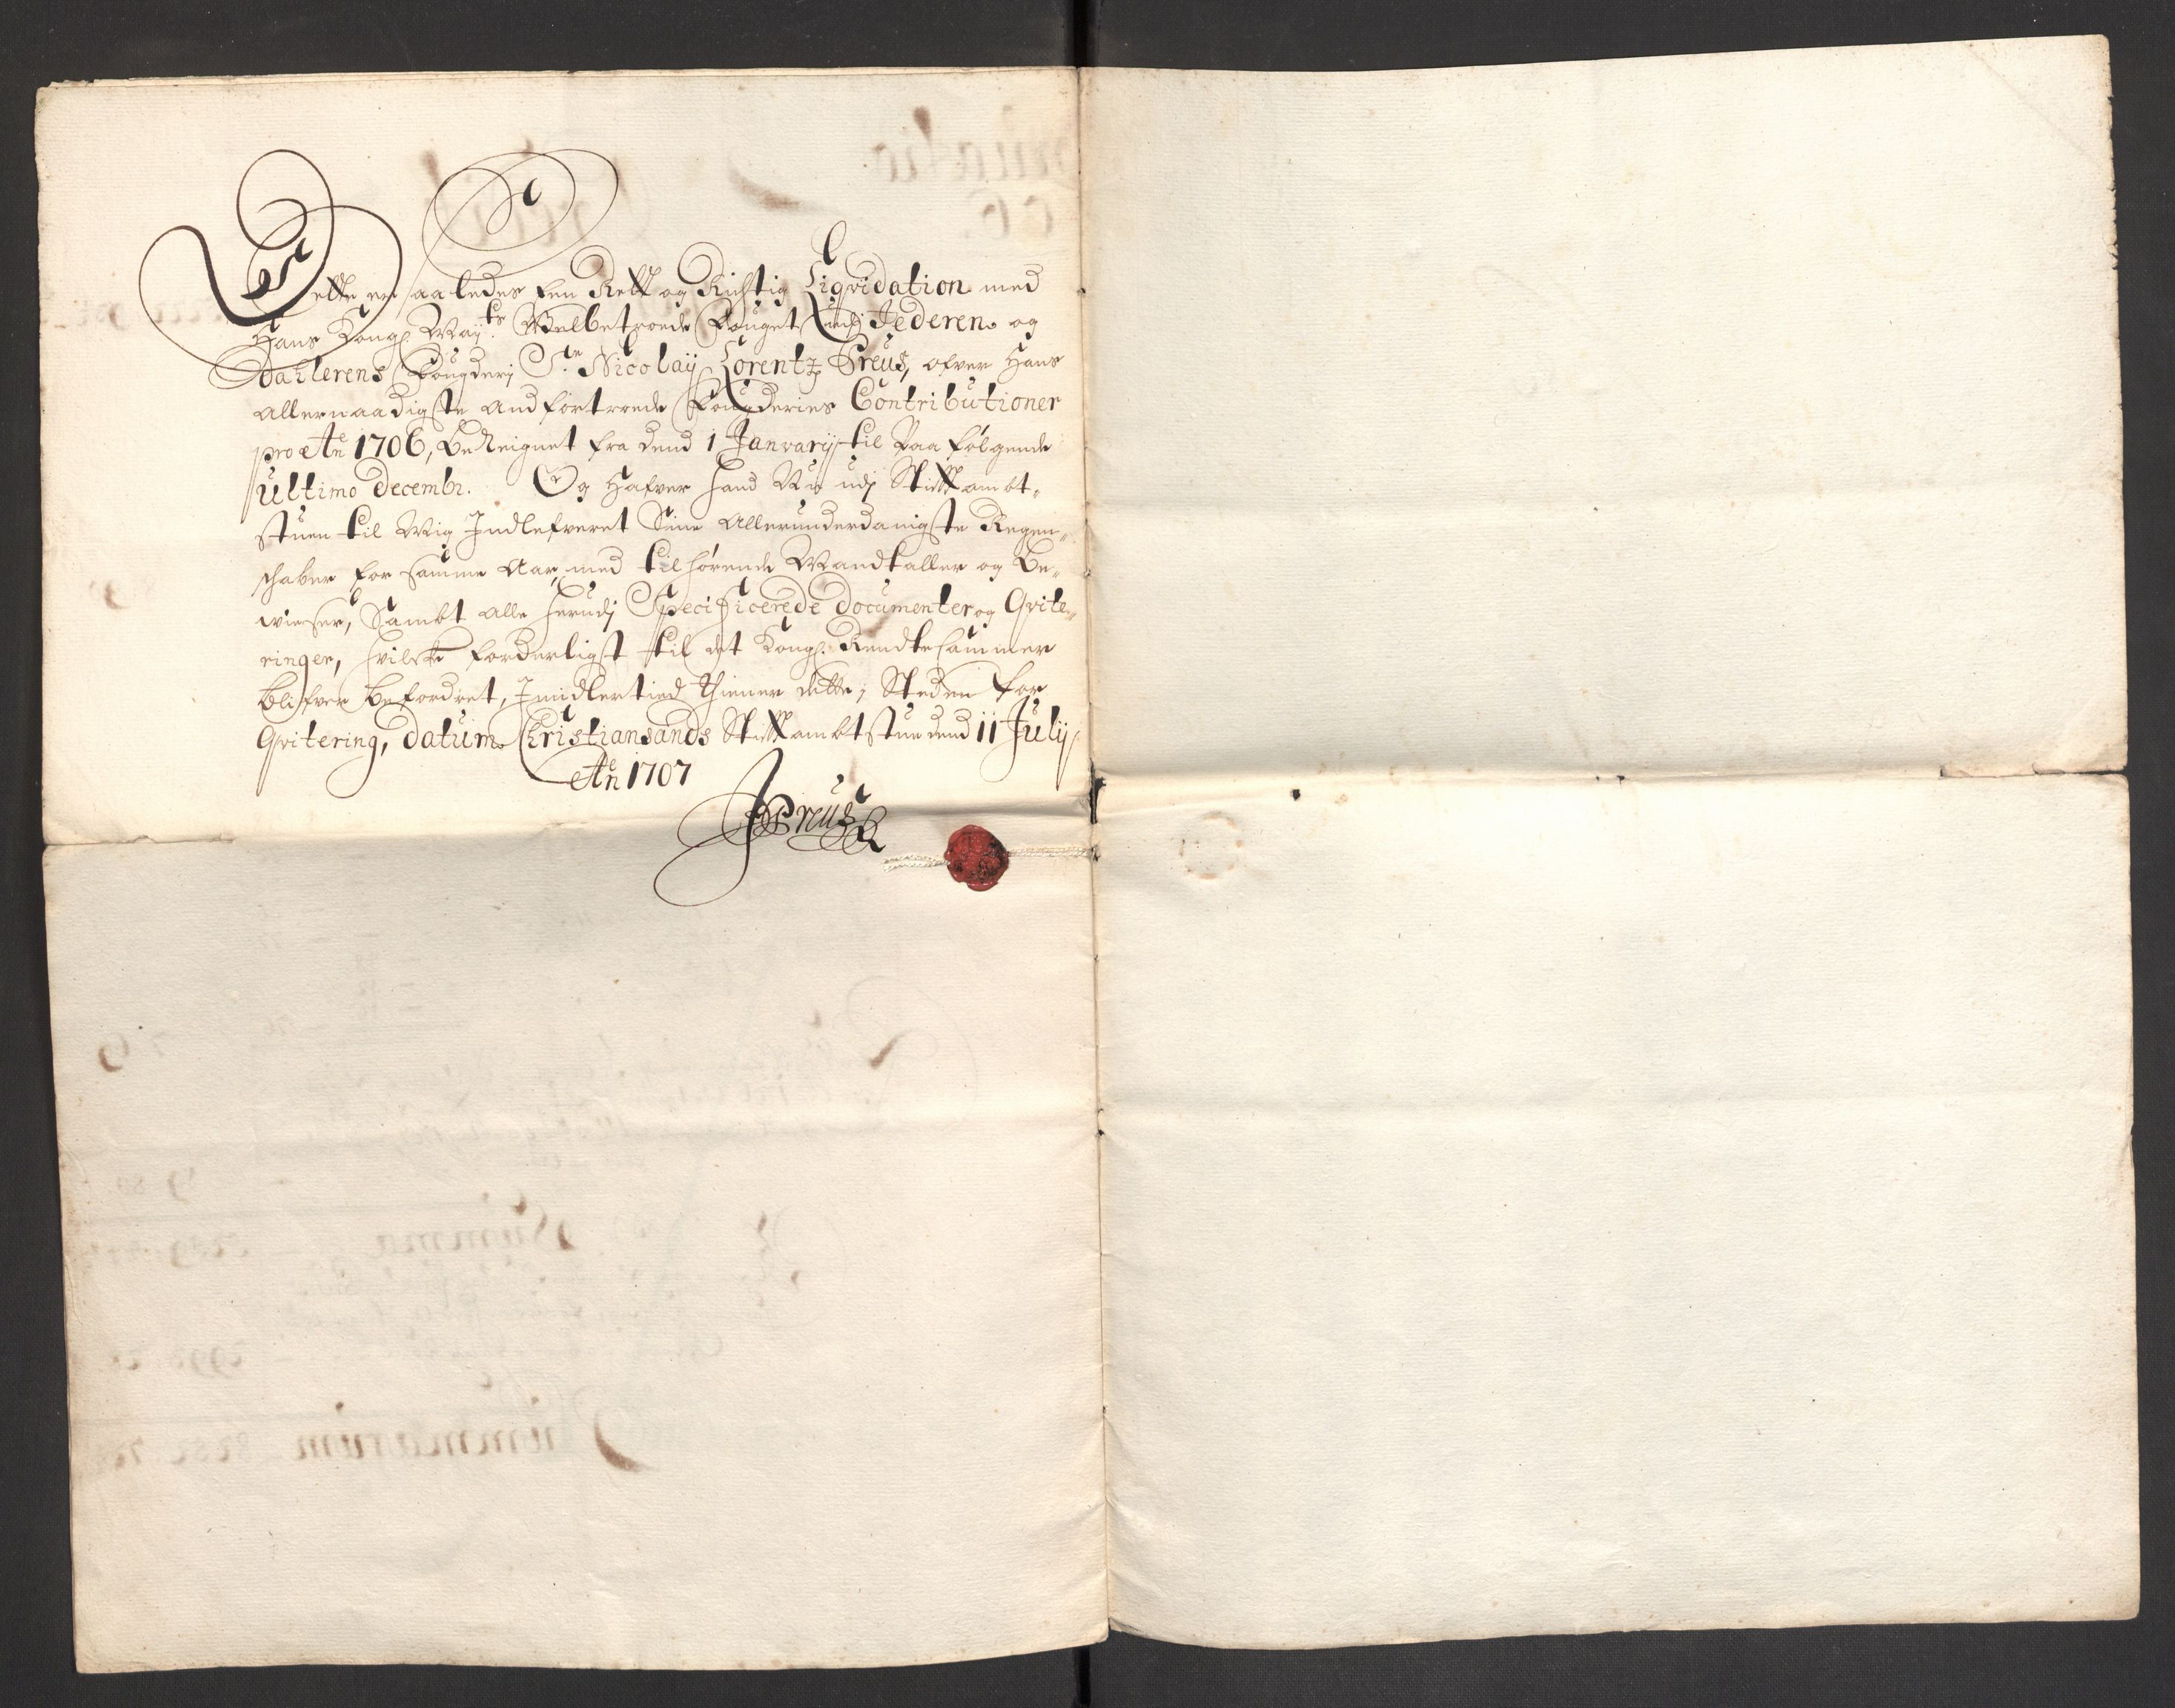 Dette er saaledes een Rett og Richtig Liqvidation med
Hans Kongl: May:ts Velbetroede Fouget udj Jederen og
Dahlerens Fougderj Sr. Nicolaij Lorentz Preus, ofver Hans
allernaadigste andfortroede Fougderies Contributioner
pro Ao 1706, Bereignet fra dend 1 Janvarij til Paa følgende
ultimo Decembr. Og Hafver hand Nu udj Stiftambt-
stuen til Mig Indlefveret Sine Allerunderdanigste Regen-
schaber for samme Aar, med tilhørende Mandtaller og Be-
wiiser, Sambt alle herudj Specificerede documenter og Qvite-
ringer, hvilcke forderligst til det Kongl: Rendtecammer
blifver befordret, Imidlertid thiener dette i Steden for
Qvitering, Datum Christiansands Stiftambtstue dend 11 Julij
Ao 1707
Preus